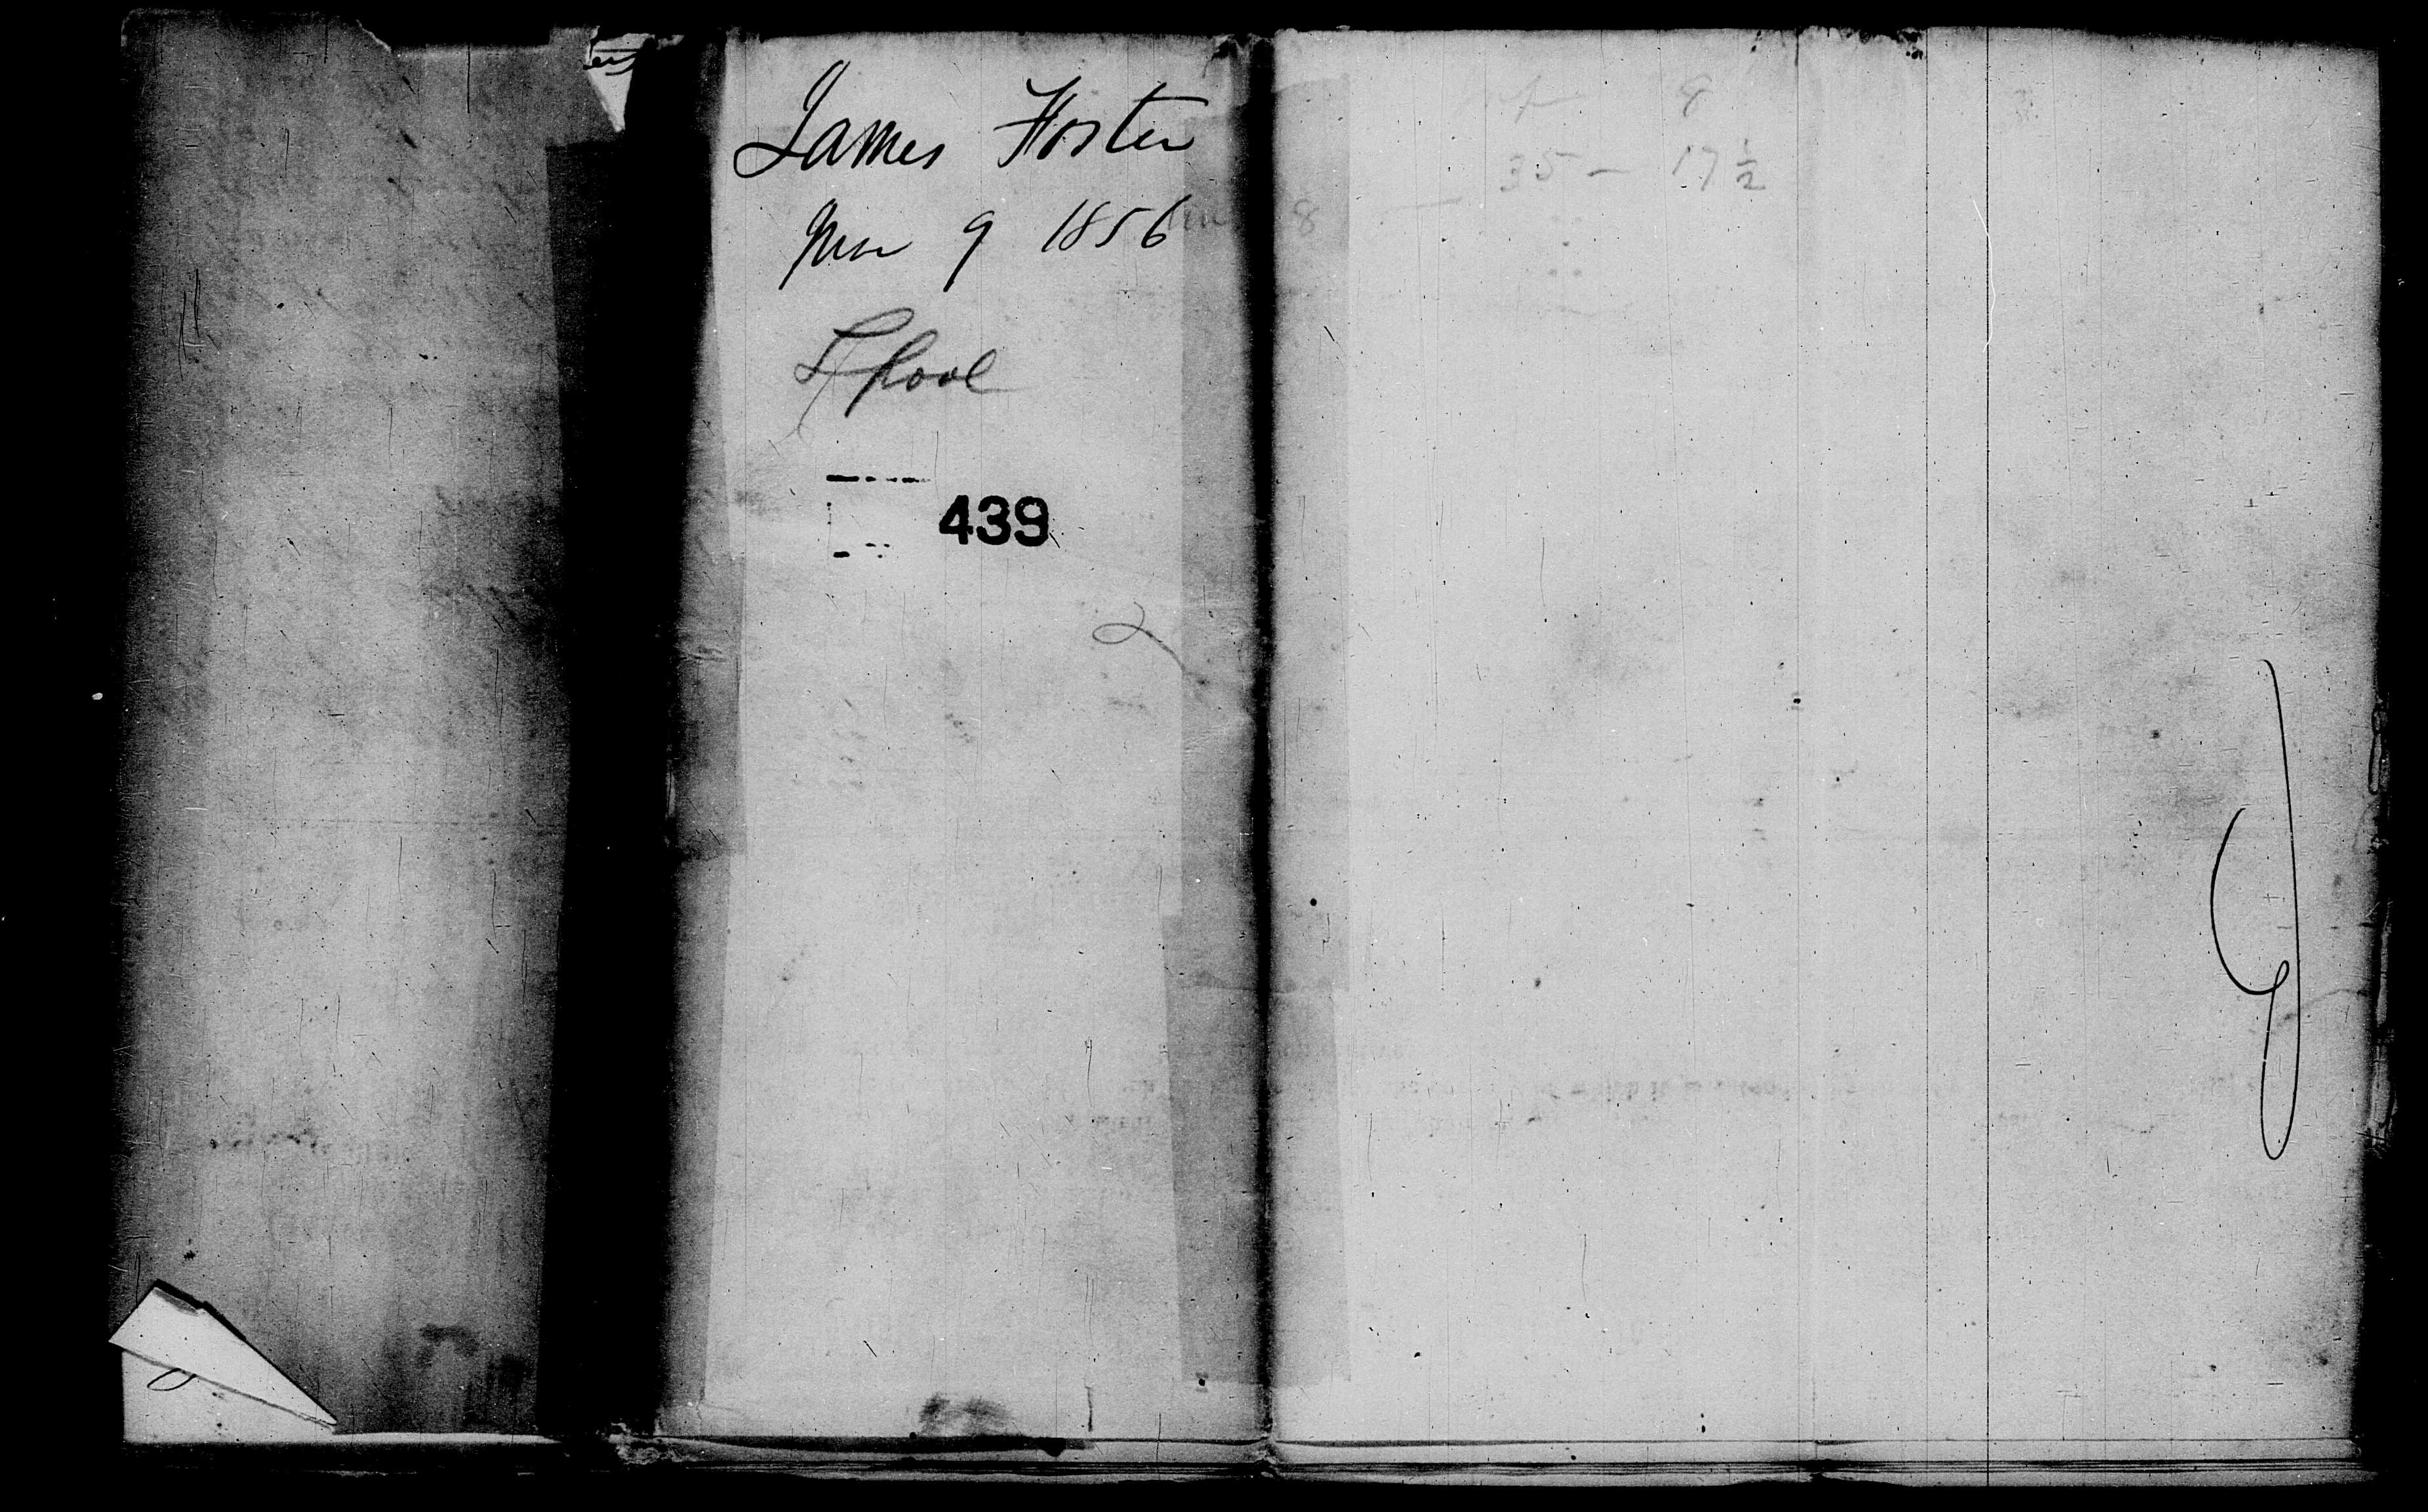 James Foster
Mar 9 1856
L'pool
439
9
35 - 17 ½
8